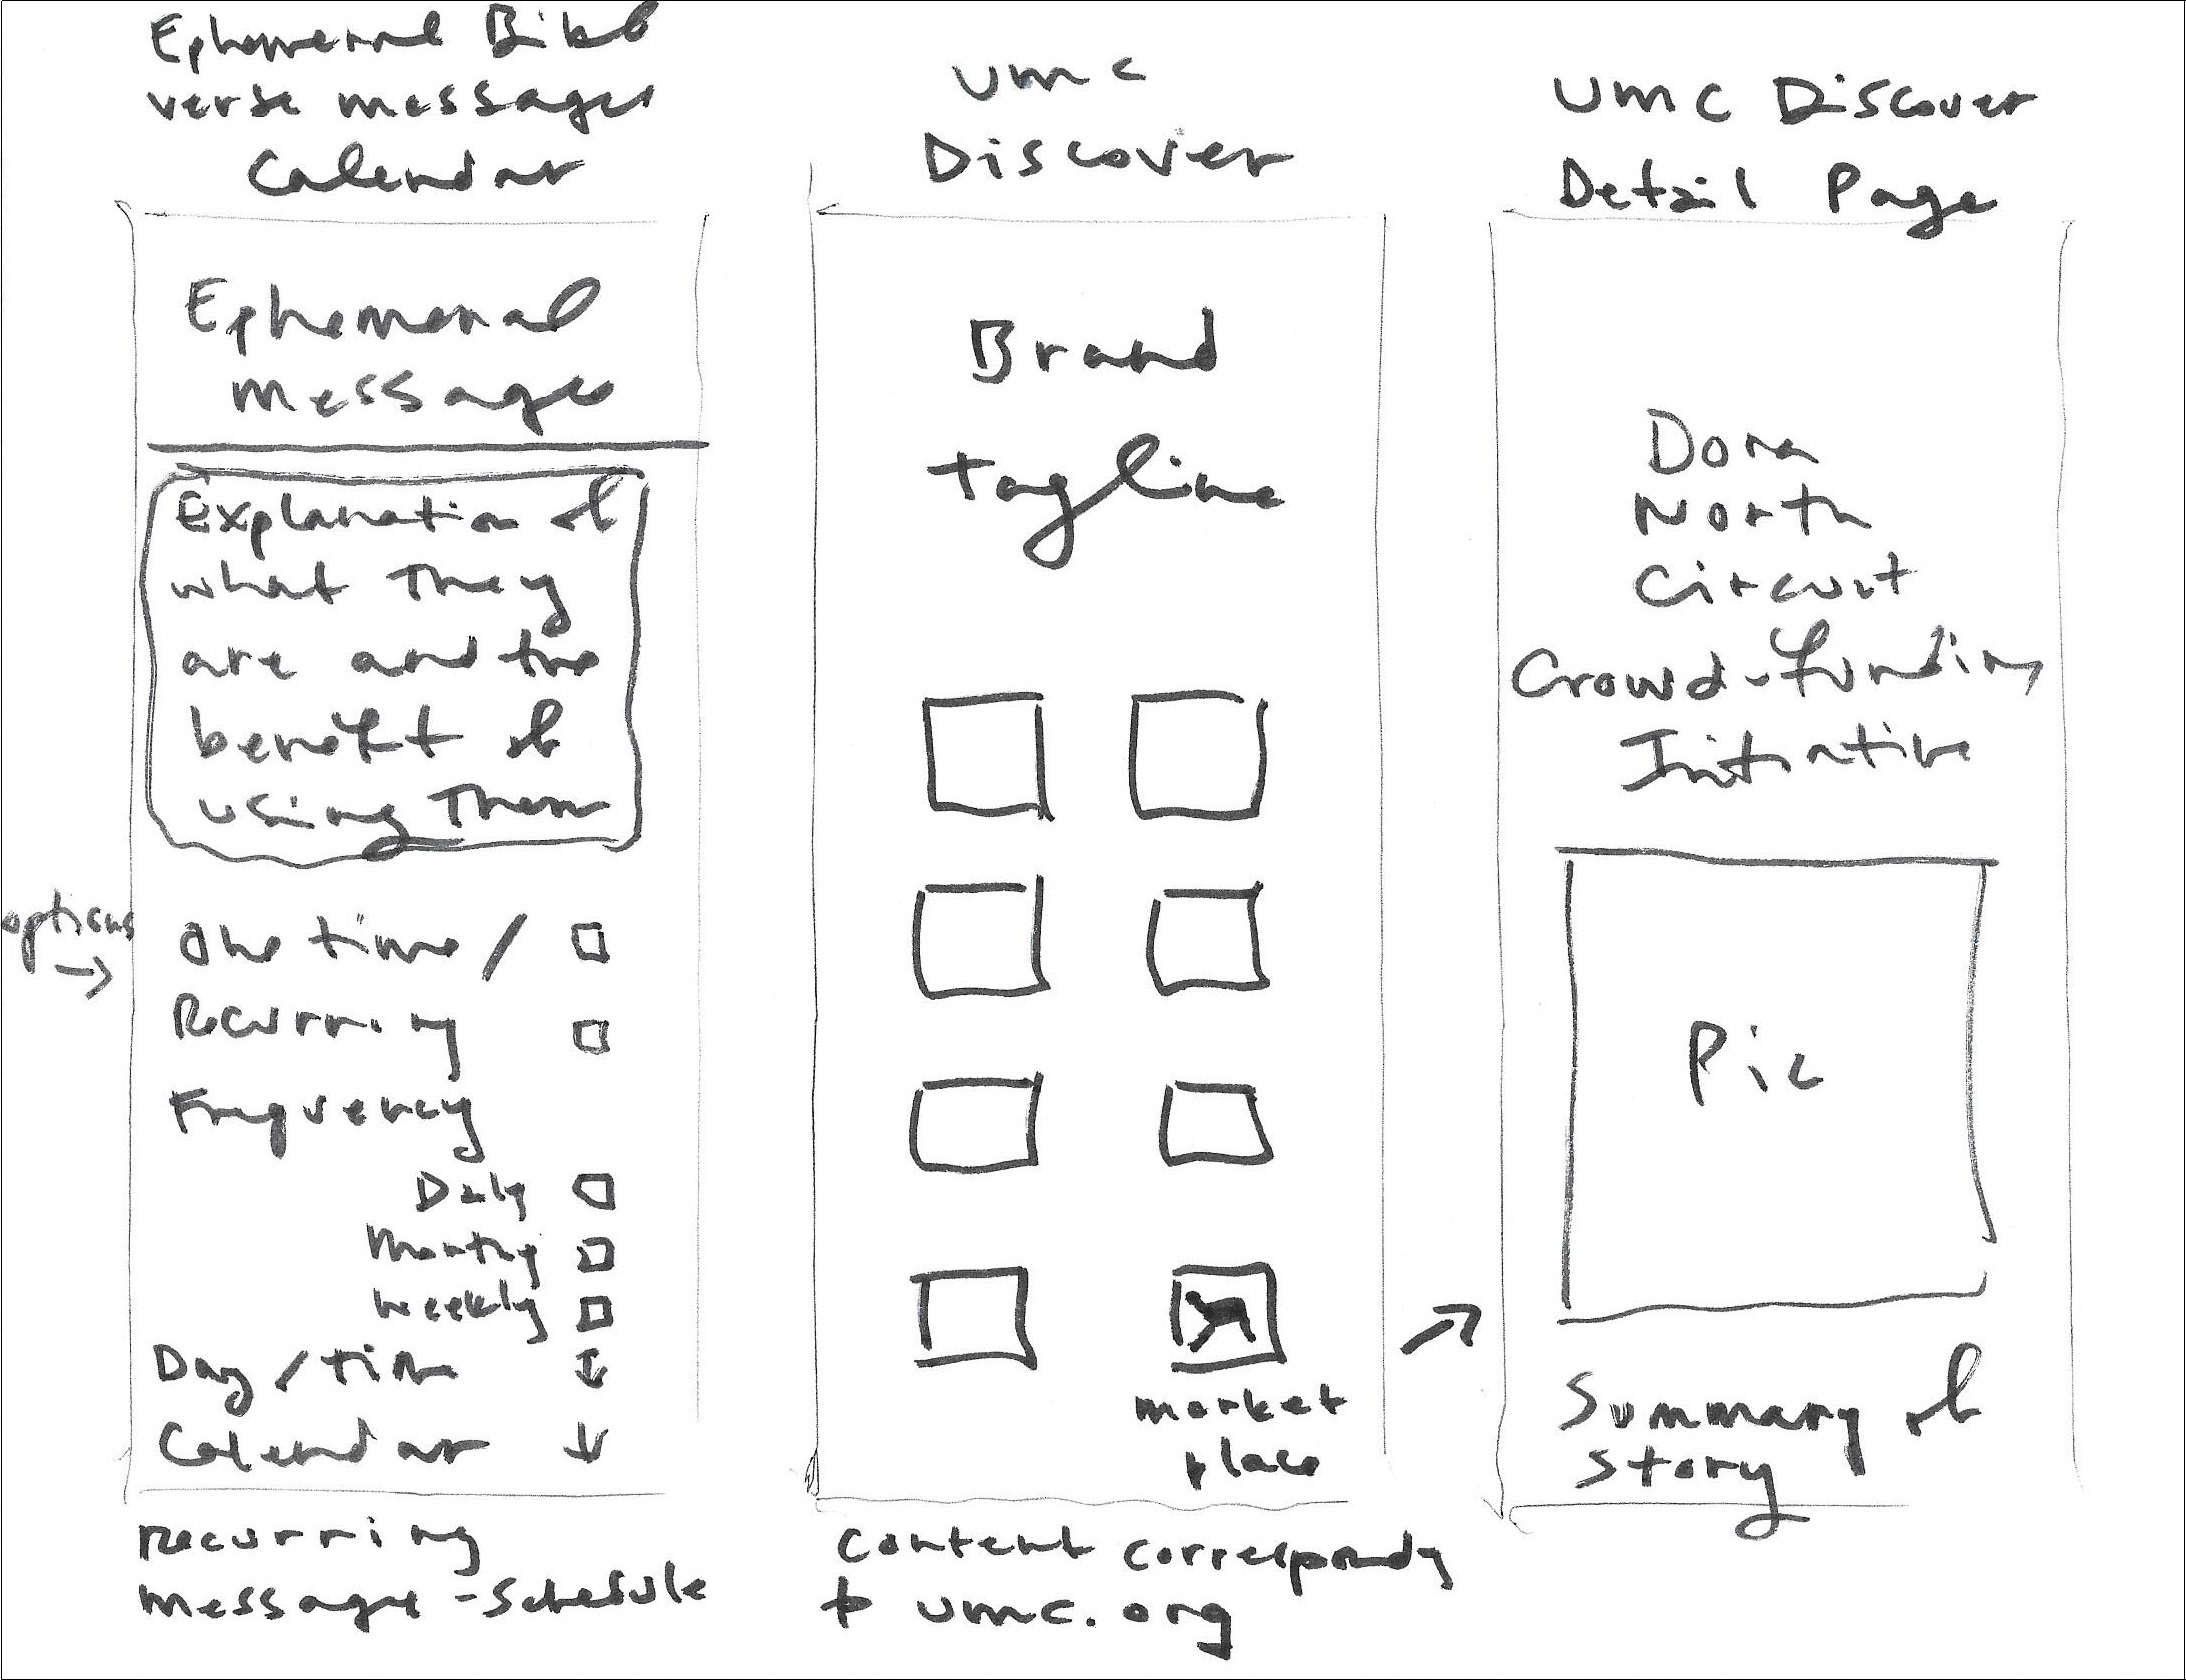 Ephemeral Bible
verse messages
Calendar
Ephemeral
messages
Explanation of
what they
are and the
benefit of
using them
options
→
One time /
Recurring
Frequency
Daily
Monthly
Weekly
Day / time
Calendar
Recurring
messages - Schedule
UMC
Discover
Brand
tagline
market
place
Content corresponds
to umc.org
UMC Discover
Detail Page
North
Circuit
Crowd-funding
Initiative
Pic
Summary of
story